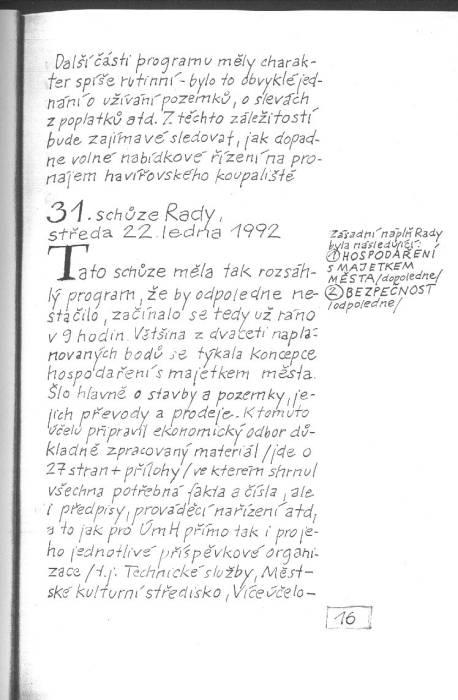 Další části programu měly charak-
ter spíše rutinní - bylo to obvyklé jed-
nání o užívání pozemků, o slevách
z poplatků atd. Z těchto záležitostí
bude zajímavé sledovat, jak dopad-
ne volné nabídkové řízení na pro-
najem havířovského koupaliště
31. schůze Rady,
středa 22. ledna 1992
Tato schůze měla tak rozsáh-
lý program, že by odpoledne ne-
stačilo, začínalo se tedy už ráno
v 9 hodin. Většina z dvaceti naplá-
novaných bodů se týkala koncepce
hospodaření s majetkem města.
Šlo hlavně o stavby a pozemky, je-
jich převody a prodeje. K tomuto
účelu připravil ekonomický odbor dů-
kladně zpracovaný materiál /jde o
27 stran + přílohy/ ve kterém shrnul
všechna potřebná fakta a čísla, ale
i předpisy, prováděcí nařízení atd,
a to jak pro ÚmH přímo tak i pro je-
ho jednotlivé příspěvkové organi-
zace /t.j. Technické služby, Měst-
ské kulturní středisko, Víceúčelo-
Zásadní náplň Rady
byla následující:
① HOSPODAŘENÍ
S MAJETKEM
MĚSTA /dopoledne/
② BEZPEČNOST
/odpoledne/
16